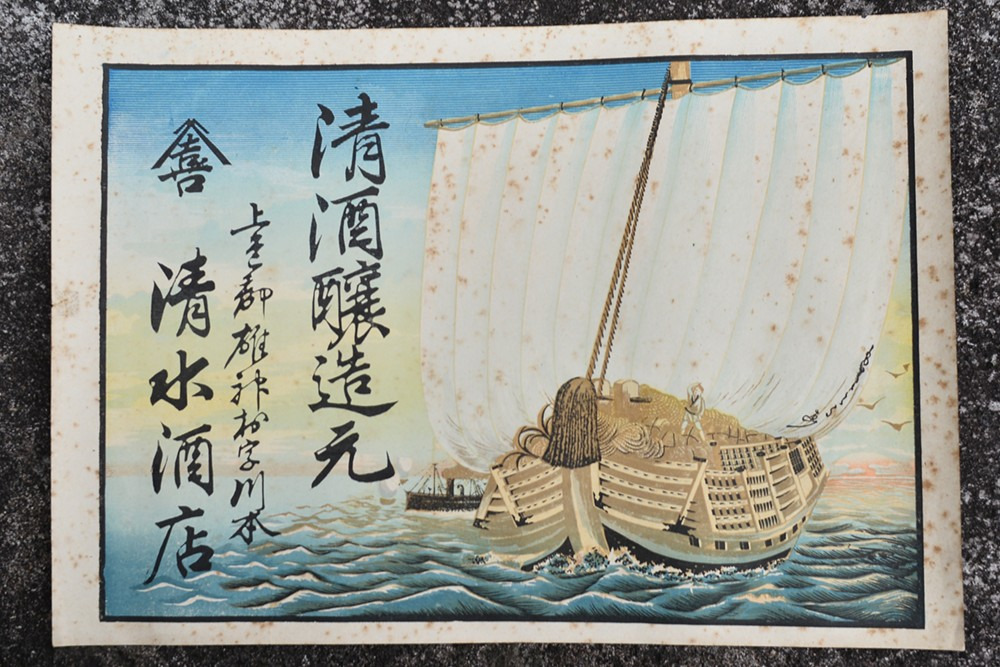 清酒釀造元
上道郡雄神村字川本
喜
清水酒店